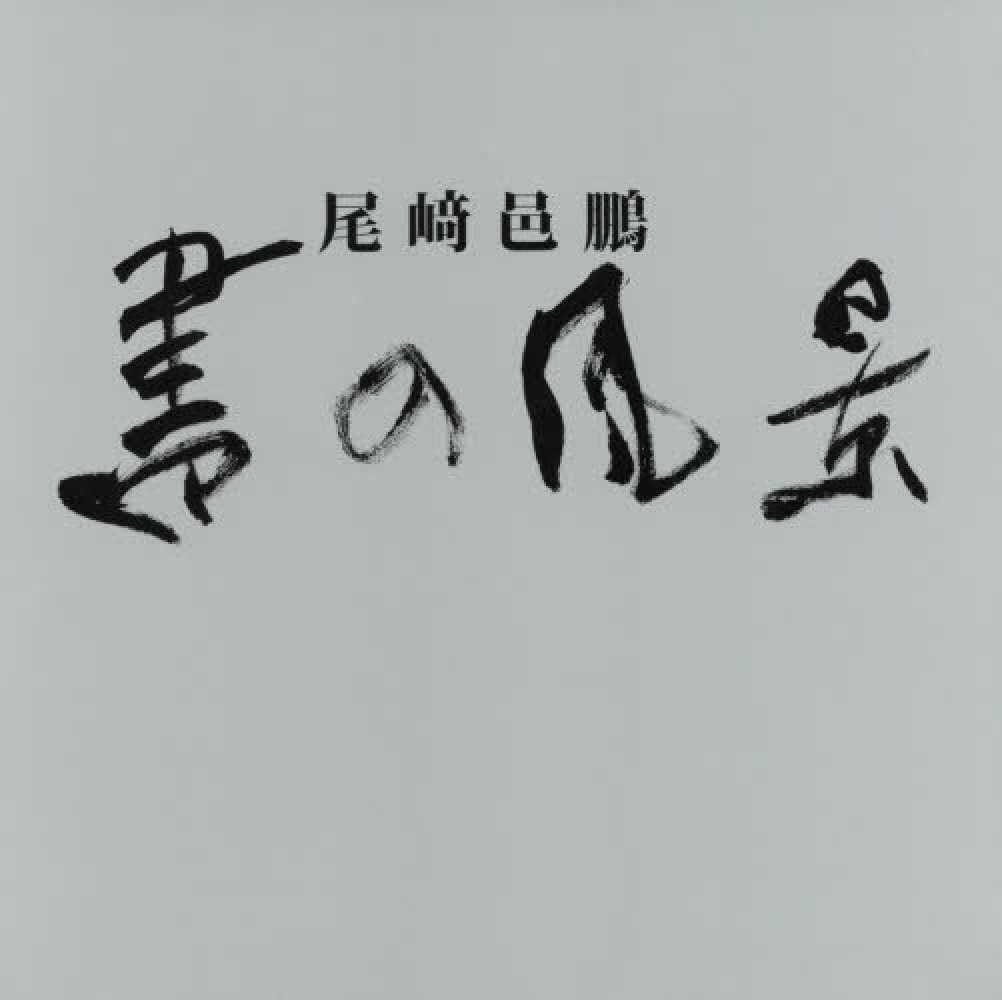 尾﨑邑鵬
書の風景